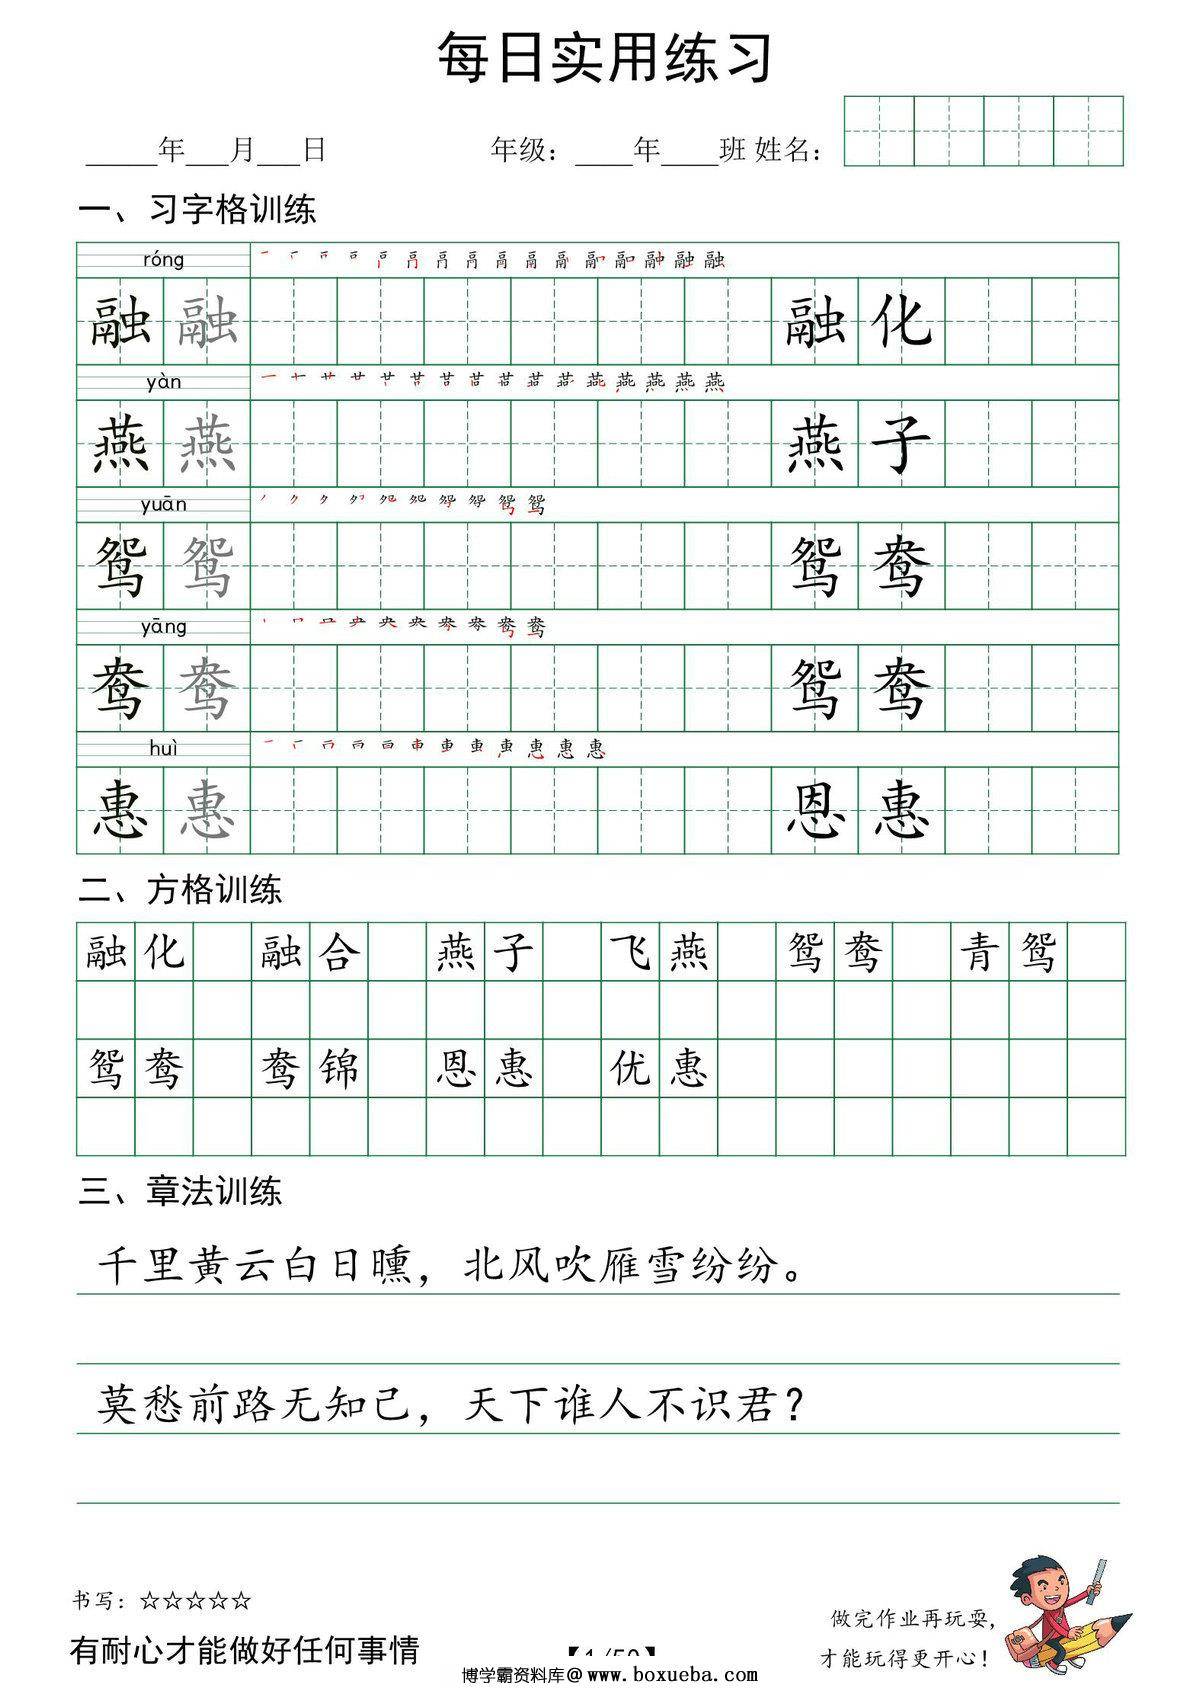 每日实用练习
_____年___月___日 年级：____年____班 姓名：
一、习字格训练
róng
融 融 融 化
yàn
燕 燕 燕 子
yuān
鸳 鸳 鸳 鸯
yāng
鸯 鸯 鸳 鸯
huì
惠 惠 恩 惠
二、方格训练
融化 融合 燕子 飞燕 鸳鸯 青鸳
鸳鸯 鸯锦 恩惠 优惠
三、章法训练
千里黄云白日曛，北风吹雁雪纷纷。
莫愁前路无知己，天下谁人不识君？
书写：☆☆☆☆☆
有耐心才能做好任何事情
做完作业再玩耍，
才能玩得更开心！
【1/50】
博学霸资料库@www.boxueba.com